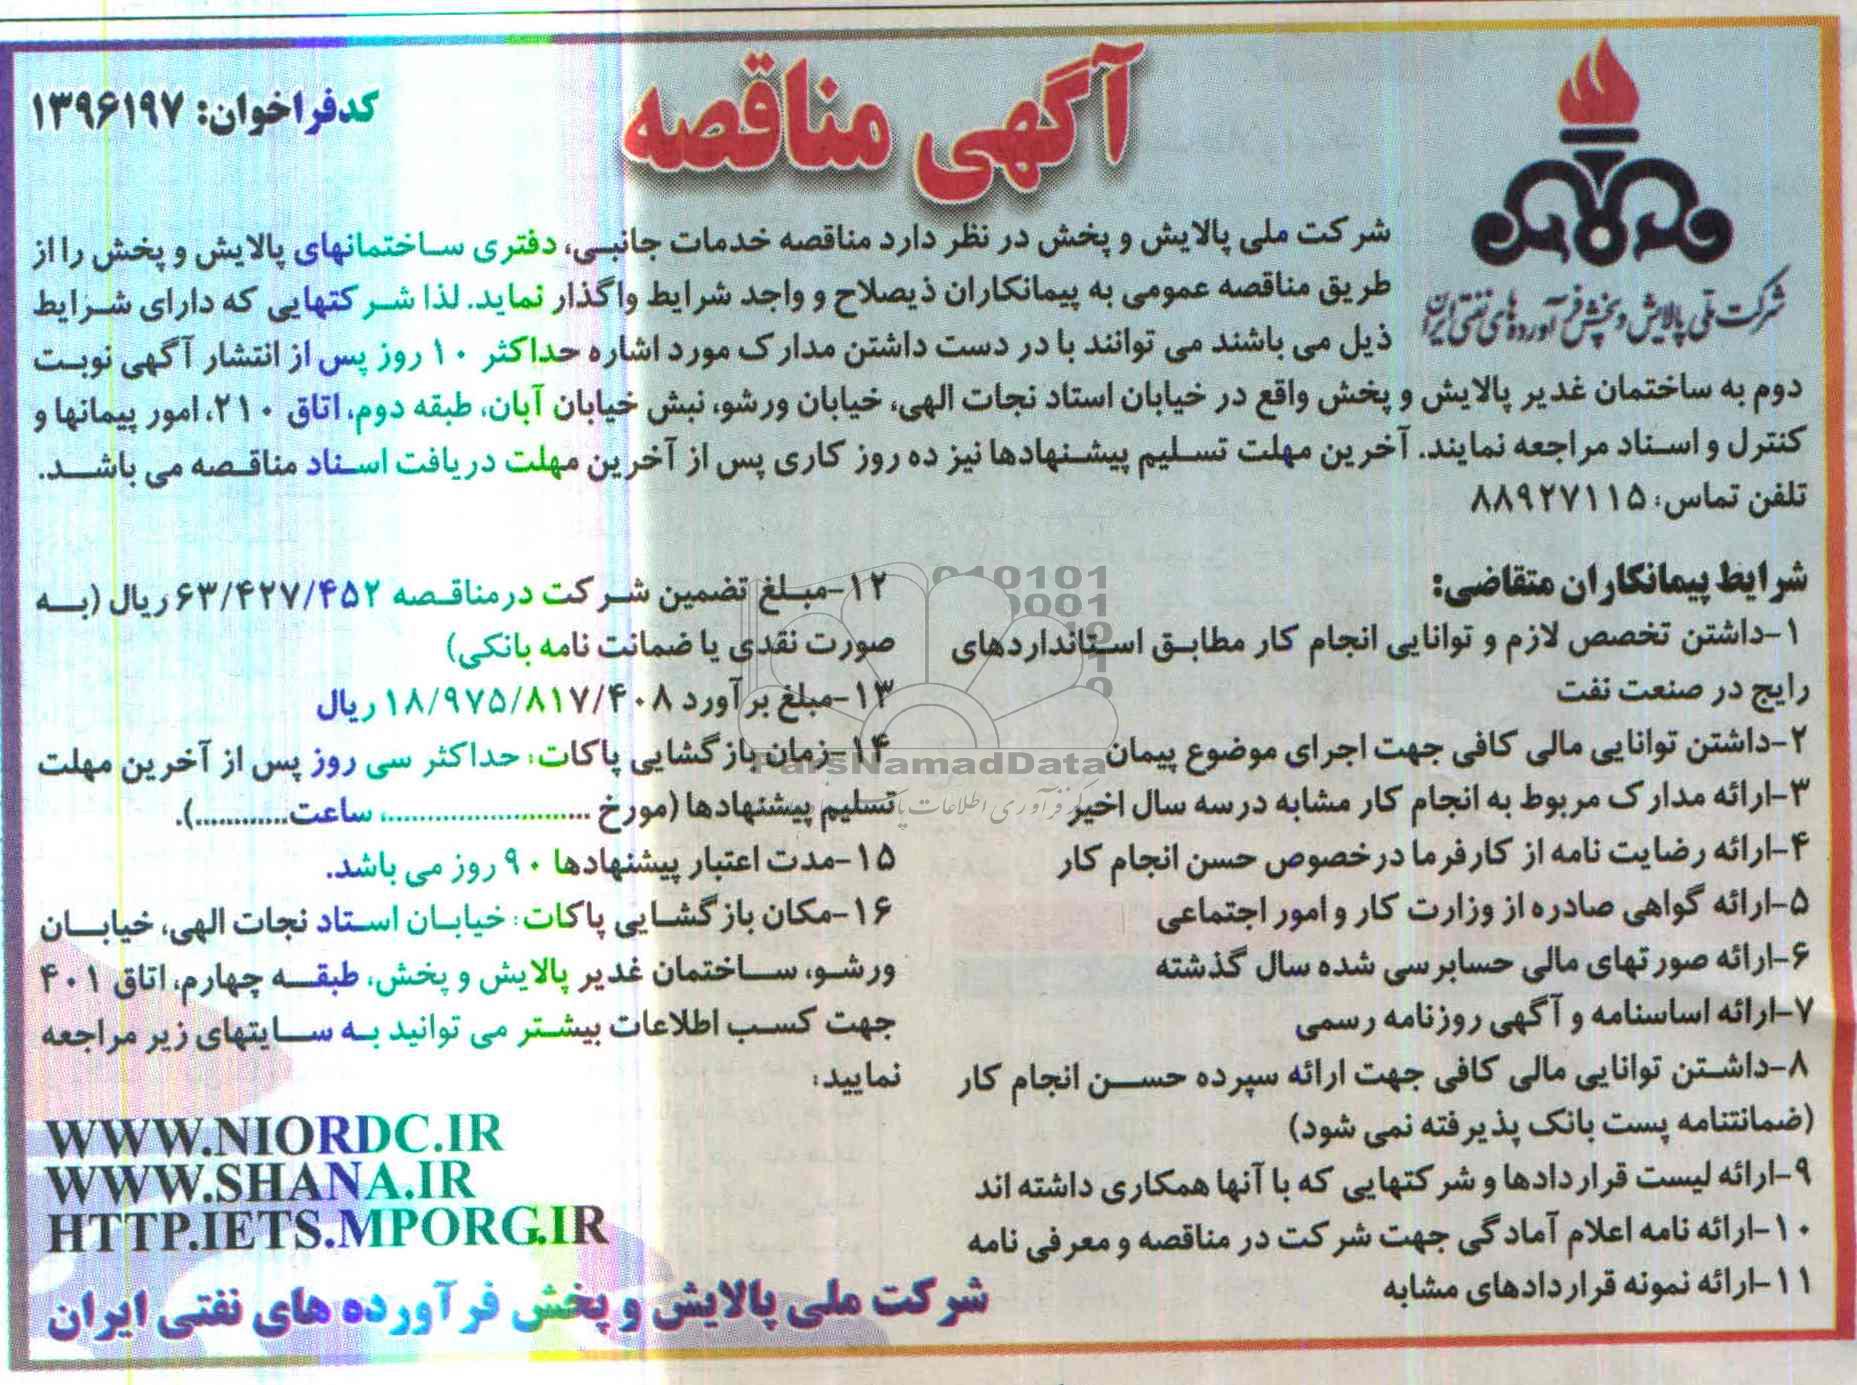 آگهی مناقصه
کدفراخوان: ۱۳۹۶۱۹۷
شرکت ملی پالایش و پخش فرآورده های نفتی ایران
شرکت ملی پالایش و پخش در نظر دارد مناقصه خدمات جانبی، دفتری ساختمانهای پالایش و پخش را از
طریق مناقصه عمومی به پیمانکاران ذیصلاح و واجد شرایط واگذار نماید. لذا شرکتهایی که دارای شرایط
ذیل می باشند می توانند با در دست داشتن مدارک مورد اشاره حداکثر ۱۰ روز پس از انتشار آگهی نوبت
دوم به ساختمان غدیر پالایش و پخش واقع در خیابان استاد نجات الهی، خیابان ورشو، نبش خیابان آبان، طبقه دوم، اتاق ۲۱۰، امور پیمانها و
کنترل و اسناد مراجعه نمایند. آخرین مهلت تسلیم پیشنهادها نیز ده روز کاری پس از آخرین مهلت دریافت اسناد مناقصه می باشد.
تلفن تماس: ۸۸۹۲۷۱۱۵
شرایط پیمانکاران متقاضی:
۱-داشتن تخصص لازم و توانایی انجام کار مطابق استانداردهای
رایج در صنعت نفت
۲-داشتن توانایی مالی کافی جهت اجرای موضوع پیمان
۳-ارائه مدارک مربوط به انجام کار مشابه درسه سال اخیر
۴-ارائه رضایت نامه از کارفرما درخصوص حسن انجام کار
۵-ارائه گواهی صادره از وزارت کار و امور اجتماعی
۶-ارائه صورتهای مالی حسابرسی شده سال گذشته
۷-ارائه اساسنامه و آگهی روزنامه رسمی
۸-داشتن توانایی مالی کافی جهت ارائه سپرده حسن انجام کار
(ضمانتنامه پست بانک پذیرفته نمی شود)
۹-ارائه لیست قراردادها و شرکتهایی که با آنها همکاری داشته اند
۱۰-ارائه نامه اعلام آمادگی جهت شرکت در مناقصه و معرفی نامه
۱۱-ارائه نمونه قراردادهای مشابه
۱۲-مبلغ تضمین شرکت درمناقصه ۶۳/۴۲۷/۴۵۲ ریال (به
صورت نقدی یا ضمانت نامه بانکی)
۱۳-مبلغ برآورد ۱۸/۹۷۵/۸۱۷/۴۰۸ ریال
۱۴-زمان بازگشایی پاکات: حداکثر سی روز پس از آخرین مهلت
تسلیم پیشنهادها (مورخ ..........................، ساعت............).
۱۵-مدت اعتبار پیشنهادها ۹۰ روز می باشد.
۱۶-مکان بازگشایی پاکات: خیابان استاد نجات الهی، خیابان
ورشو، ساختمان غدیر پالایش و پخش، طبقه چهارم، اتاق ۴۰۱
جهت کسب اطلاعات بیشتر می توانید به سایتهای زیر مراجعه
نمایید:
WWW.NIORDC.IR
WWW.SHANA.IR
HTTP.IETS.MPORG.IR
شرکت ملی پالایش و پخش فرآورده های نفتی ایران
ParsNamadData